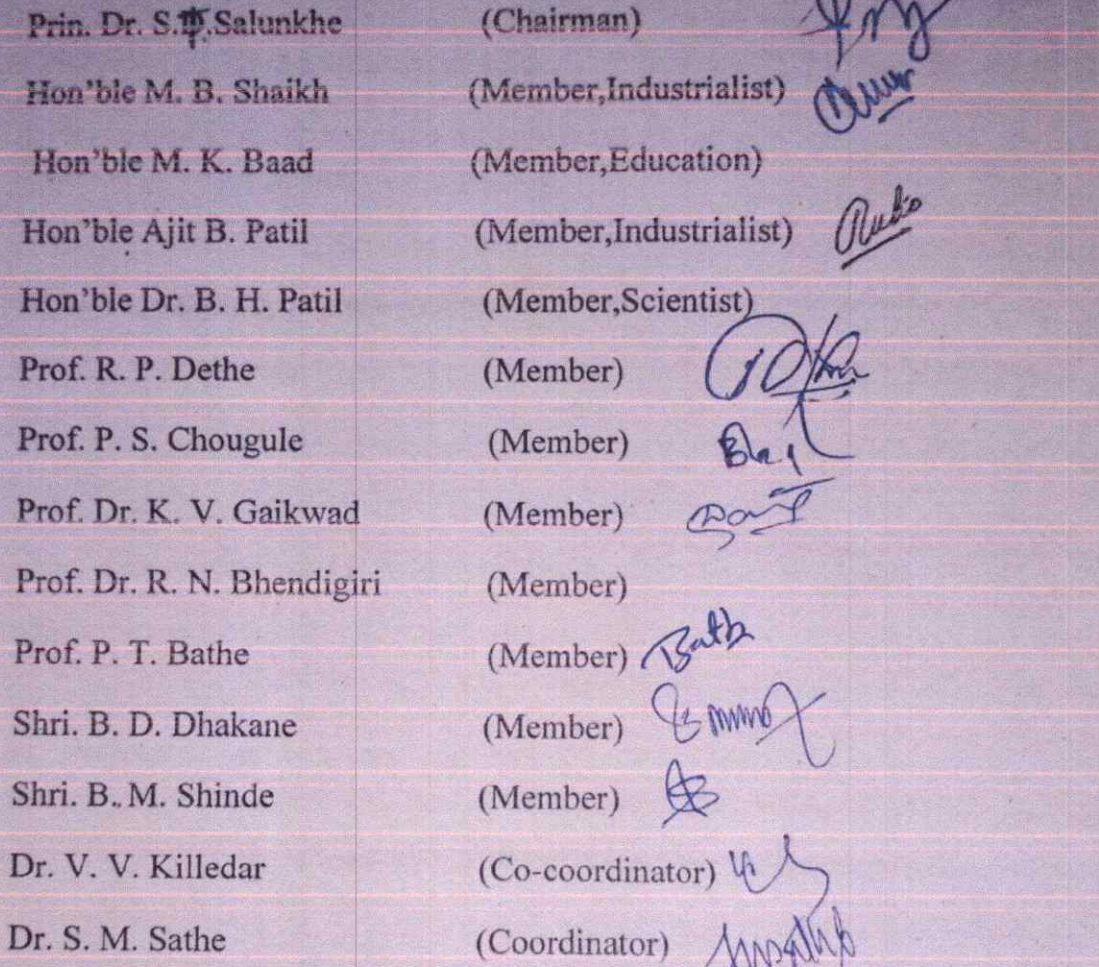 Prin. Dr. S. Salunkhe (Chairman)
Hon'ble M. B. Shaikh (Member,Industrialist)
Hon'ble M. K. Baad (Member,Education)
Hon'ble Ajit B. Patil (Member,Industrialist)
Hon'ble Dr. B. H. Patil (Member,Scientist)
Prof. R. P. Dethe (Member)
Prof. P. S. Chougule (Member)
Prof. Dr. K. V. Gaikwad (Member)
Prof. Dr. R. N. Bhendigiri (Member)
Prof. P. T. Bathe (Member)
Shri. B. D. Dhakane (Member)
Shri. B. M. Shinde (Member)
Dr. V. V. Killedar (Co-coordinator)
Dr. S. M. Sathe (Coordinator)